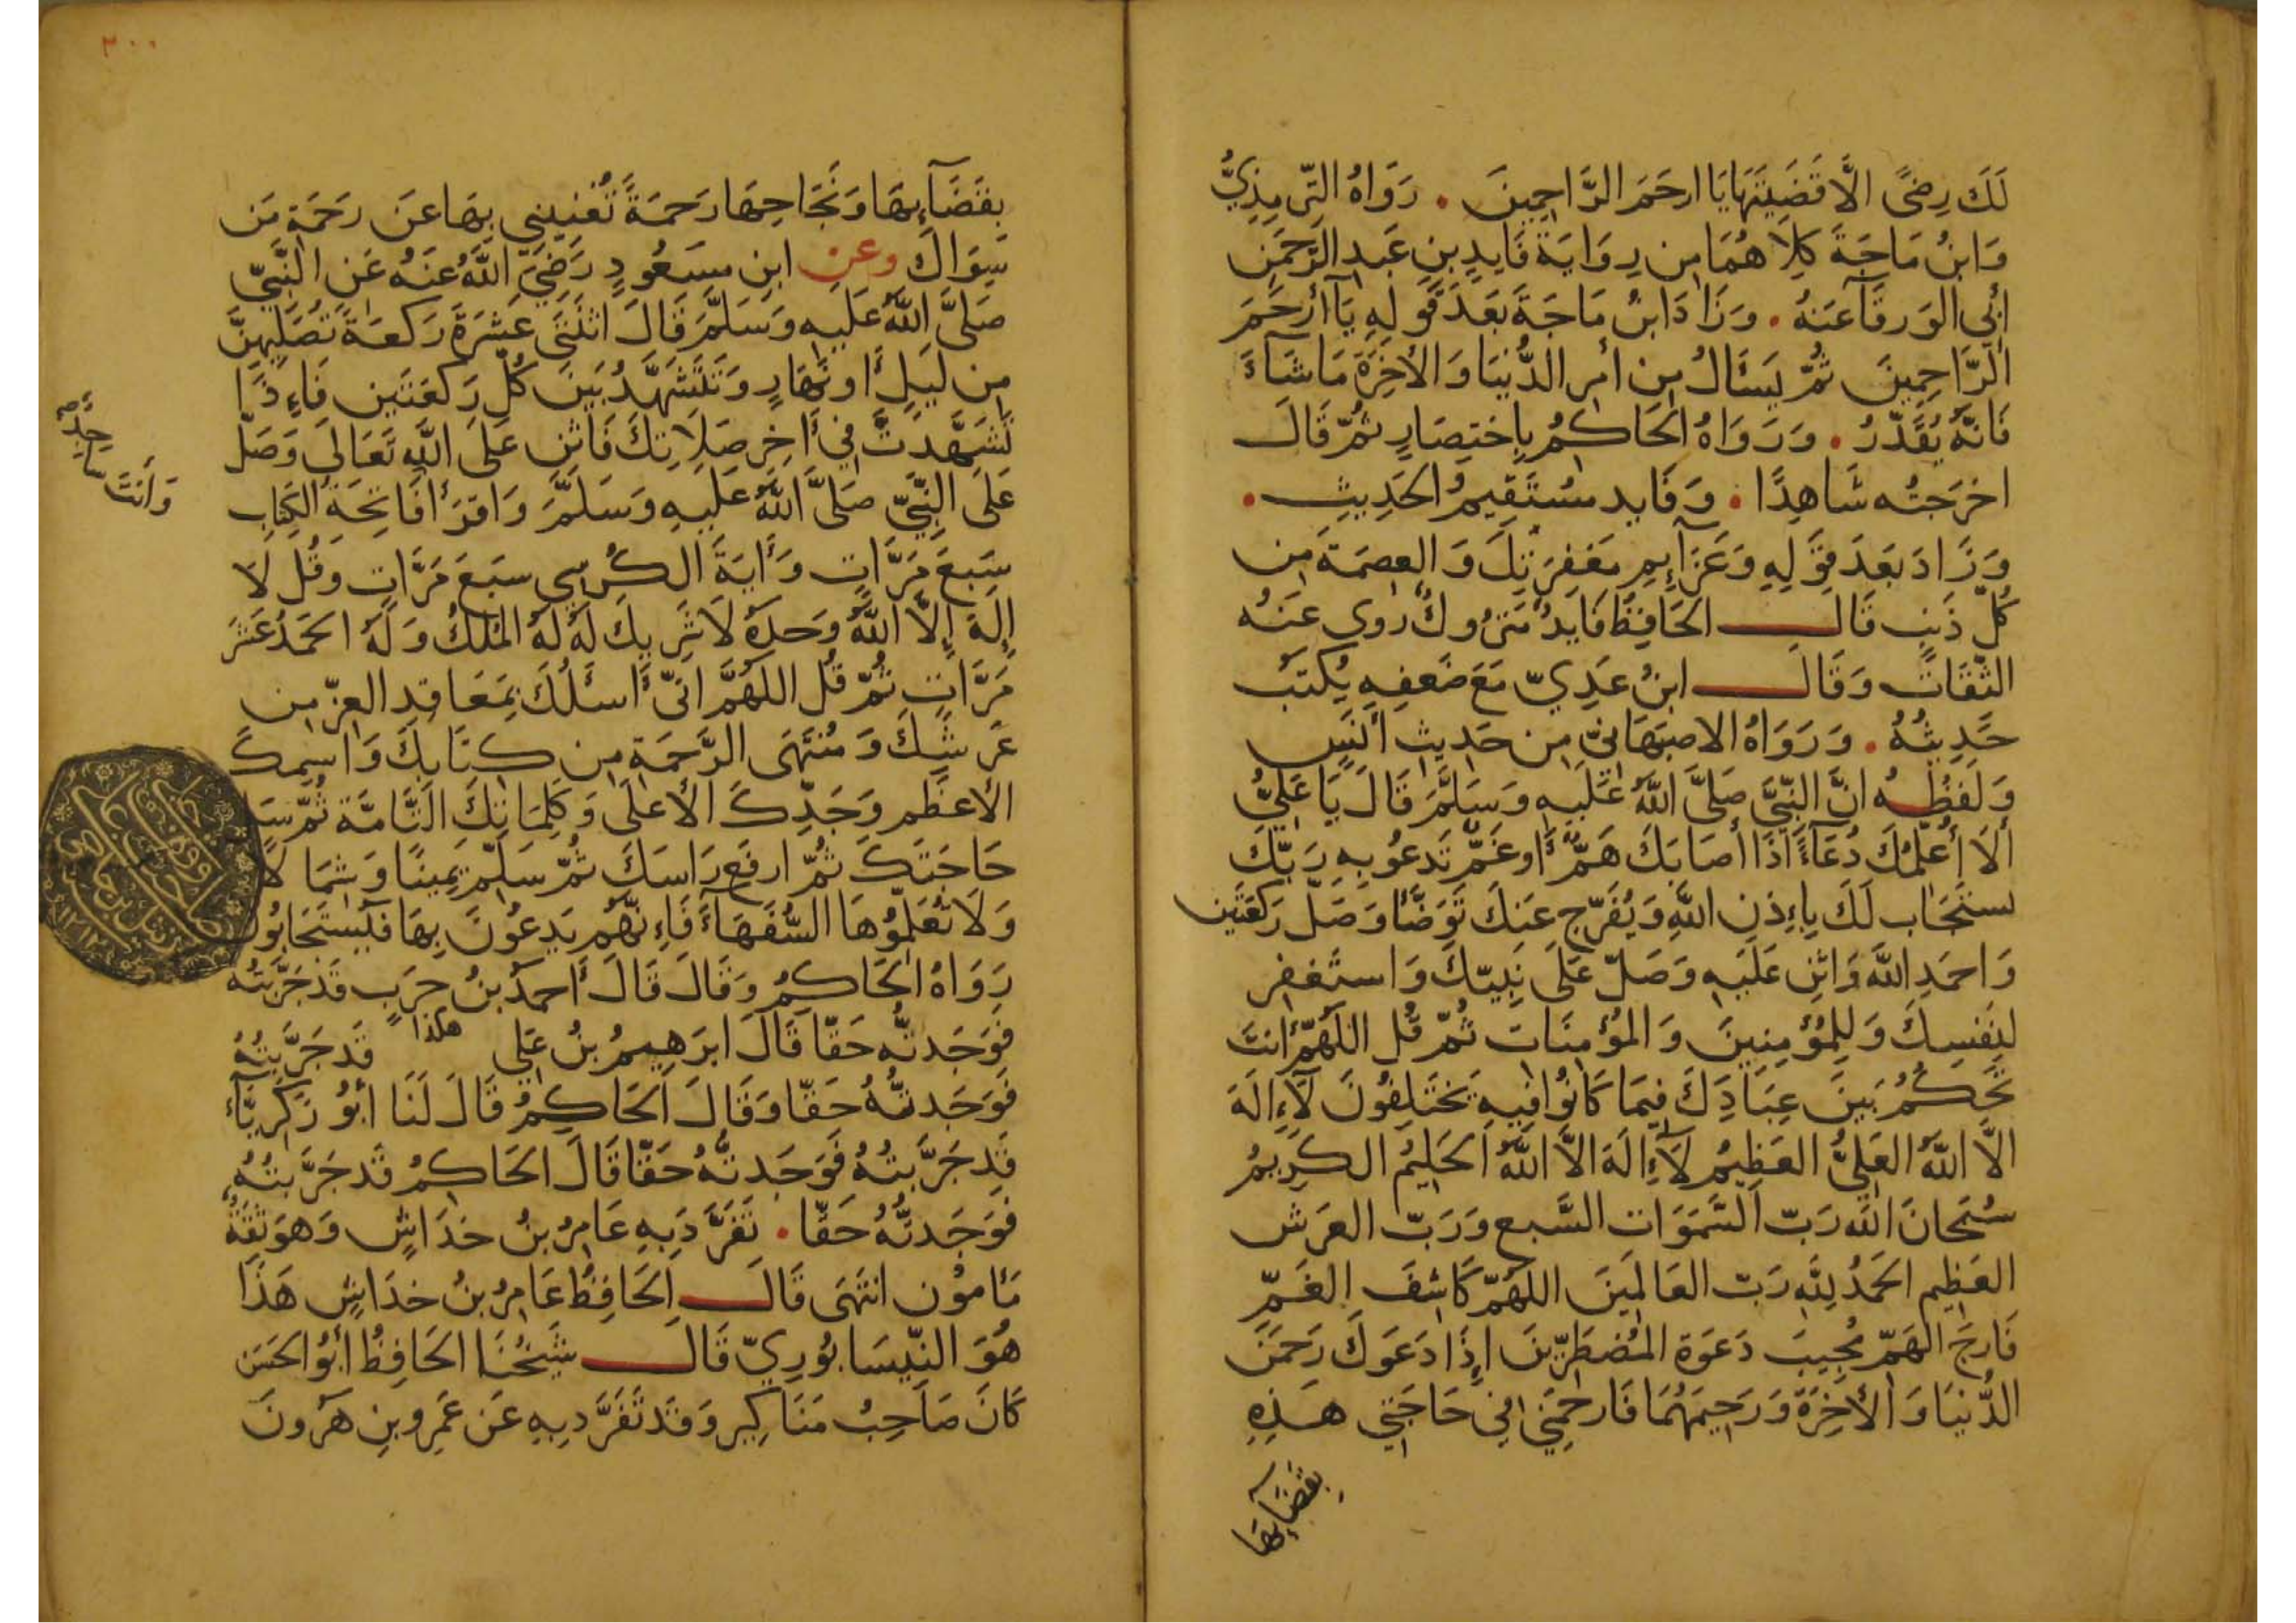 لَكَ رِضًى الَّا قَضَيتَهَا يَا ارحَمَ الرَّاحِمِينَ . رَوَاهُ التِّرمِذِيُّ
وَابنُ مَاجَةَ كِلَاهُمَا مِن رِوَايَةِ فَايِدِ بنِ عَبدِ الرَّحمَنِ
أبِي الوَرقَآ عَنهُ . وَزَادَ ابنُ مَاجَةَ بَعدَ قَولِهِ يَآ أرحَمَ
الرَّاحِمِينَ ثُمَّ يَسئَالُ مِن أمرِ الدُّنيَا وَالأخِرَةِ مَاشَآءَ
فَانَّهُ يُقَدَّرُ . وَرَوَاهُ الحَاكِمُ بِاختِصَارٍ ثُمَّ قَالَ
اخرَجتُه شَاهِدًا . وَفَايد مُستَقِيمُ الحَدِيثِ .
وَزَادَ بَعدَ قَولِهِ وَعَزَآيِمِ مَغفِرَتِكَ وَالعِصمَةَ مِن
كُلِّ ذَنبٍ قَالَ الحَافِظُ فَايدُ مَترُوكٌ رَوى عَنهُ
الثِّقَاتُ وَقَالَ ابنُ عَدِيّ مَعَ ضَعفِهِ يُكتَبُ
حَدِيثُهُ . وَرَوَاهُ الاصبَهَانِيّ مِن حَدِيثِ أنَسٍ
وَلَفظُهُ انَّ النَّبِيَّ صَلَّى اللَّهُ عَلَيهِ وَسَلَّمَ قَالَ يَا عَلِيُّ
ألَا أُعَلِّمُكَ دُعَآءً اذَا أصَابَكَ هَمٌّ أَو غَمٌّ تَدعُو بِهِ رَبَّكَ
يستَجَاب لَكَ بِإِذنِ اللَّهِ وَيُفَرَّج عَنكَ تَوَضَّأ وَصَلِّ رَكعَتَين
وَاحمَدِ اللَّهَ وَاثنِ عَلَيهِ وَصَلِّ عَلَى نَبِيِّكَ وَاستَغفِر
لِنَفسِكَ وَلِلمُؤمِنِينَ وَالمُؤمِنَات ثُمَّ قُلِ اللَّهُمَّ أنتَ
تَحكُمُ بَينَ عِبَادِكَ فِيمَا كَانُوا فِيهِ يَختَلِفُونَ لَآإِلَهَ
الَّا اللَّهُ العَلِيُّ العَظِيمُ لَآإِلَهَ الَّا اللَّهُ الحَلِيمُ الكَرِيمُ
سُبحَانَ اللَّهِ رَبِّ السَّمَوَات السَّبعِ وَرَبِّ العَرَشِ
العَظِيمِ الحَمدُ لِلَّهِ رَبِّ العَالَمِينَ اللَّهُمَّ كَاشِفَ الغَمِّ
فَارِجَ الهَمِّ مُجِيبَ دَعوَةِ المُضطَرِّينَ إِذَا دَعَوكَ رَحمَنَ
الدُّنيَا وَالأخِرَةِ وَرَحِيمَهُمَا فَارحَمنِي فِي حَاجَتِي هَذِهِ
بِقَضَآئِهَا
٢٠٠
بِقَضَآئِهَا وَنَجَاحِهَا رَحمَةً تُغنِينِي بِهَا عَن رَحمَةِ مَن
سِوَاكَ وعن ابنِ مَسعُودٍ رَضِيَ اللَّهُ عَنهُ عَنِ النَّبِيِّ
صَلَّى اللَّهُ عَلَيهِ وَسَلَّمَ قَالَ اثنَتَى عَشرَةَ رَكعَةً تُصَلِّيهِنَّ
مِن لَيلٍ أَو نَهَارٍ وَتَتَشَهَّدُ بَينَ كُلِّ رَكعَتَينِ فَإِذَا
تَشَهَّدتَ فِي أَخِرِ صَلَاتِكَ فَاثنِ عَلَى اللَّهِ تَعَالَى وَصَلِّ
عَلَى النَّبِيِّ صَلَّى اللَّهُ عَلَيهِ وَسَلَّمَ وَاقرَأ فَاتِحَةَ الكِتَابِ
وَأنتَ سَاجِدٌ
سَبعَ مَرَّاتٍ وَأَيَةَ الكُرسِي سَبعَ مَرَّاتٍ وَقُل لَا
إِلَهَ إِلَّا اللَّهُ وَحدَهُ لَاشَرِيكَ لَهُ لَهُ المُلكُ وَلَهُ الحَمدُ عَشرَ
مَرَّاتٍ ثُمَّ قُلِ اللَّهُمَّ انِّى أَسئَلُكَ بِمَعَاقِدِ العِزِّ مِن
عَرشِكَ وَمُنتَهَى الرَّحمَةِ مِن كِتَابِكَ وَاسمِكَ
الأعظَمِ وَجَدِّكَ الأعلَى وَكَلِمَاتِكَ التَّامَّة ثُمَّ سَل
حَاجَتَكَ ثُمَّ ارفَع رَاسَكَ ثُمَّ سَلِّم يَمِينًا وَشِمَالًا
وَلَا تُعَلِّمُوهَا السُّفَهَآءَ فَإِنَّهُم يَدعُونَ بِهَا فَيُستَجَابُون
رَوَاهُ الحَاكِمُ وَقَالَ قَالَ أَحمَدُ بنُ حَربٍ قَد جَرَّبتُه
فَوَجَدتُّه حَقًّا قَالَ ابرَهِيمُ بنُ عَلِي هكذا قَد جَرَّبتُهُ
فَوَجَدتُّهُ حَقًّا وَقَالَ الحَاكِمُ قَالَ لَنَا أبُو زَكَرِيَّآءَ
قَد جَرَّبتُهُ فَوَجَدتُّهُ حَقًّا قَالَ الحَاكِمُ قَد جَرَّبتُهُ
فَوَجَدتُّهُ حَقًّا . تَفَرَّدَ بِهِ عَامِرُ بنُ خدَاشٍ وَهوَ ثِقَةٌ
مَأمُون انتَهَى قَالَ الحَافِظُ عَامِرُ بنُ خدَاشٍ هَذَا
هُوَ النِّيسَابُورِيّ قَالَ شَيخُنَا الحَافِظُ أبُو الحَسَن
كَانَ صَاحِبُ مَنَاكِير وَقَد تَفَرَّد بِهِ عَن عَمرِو بنِ هَرُونَ